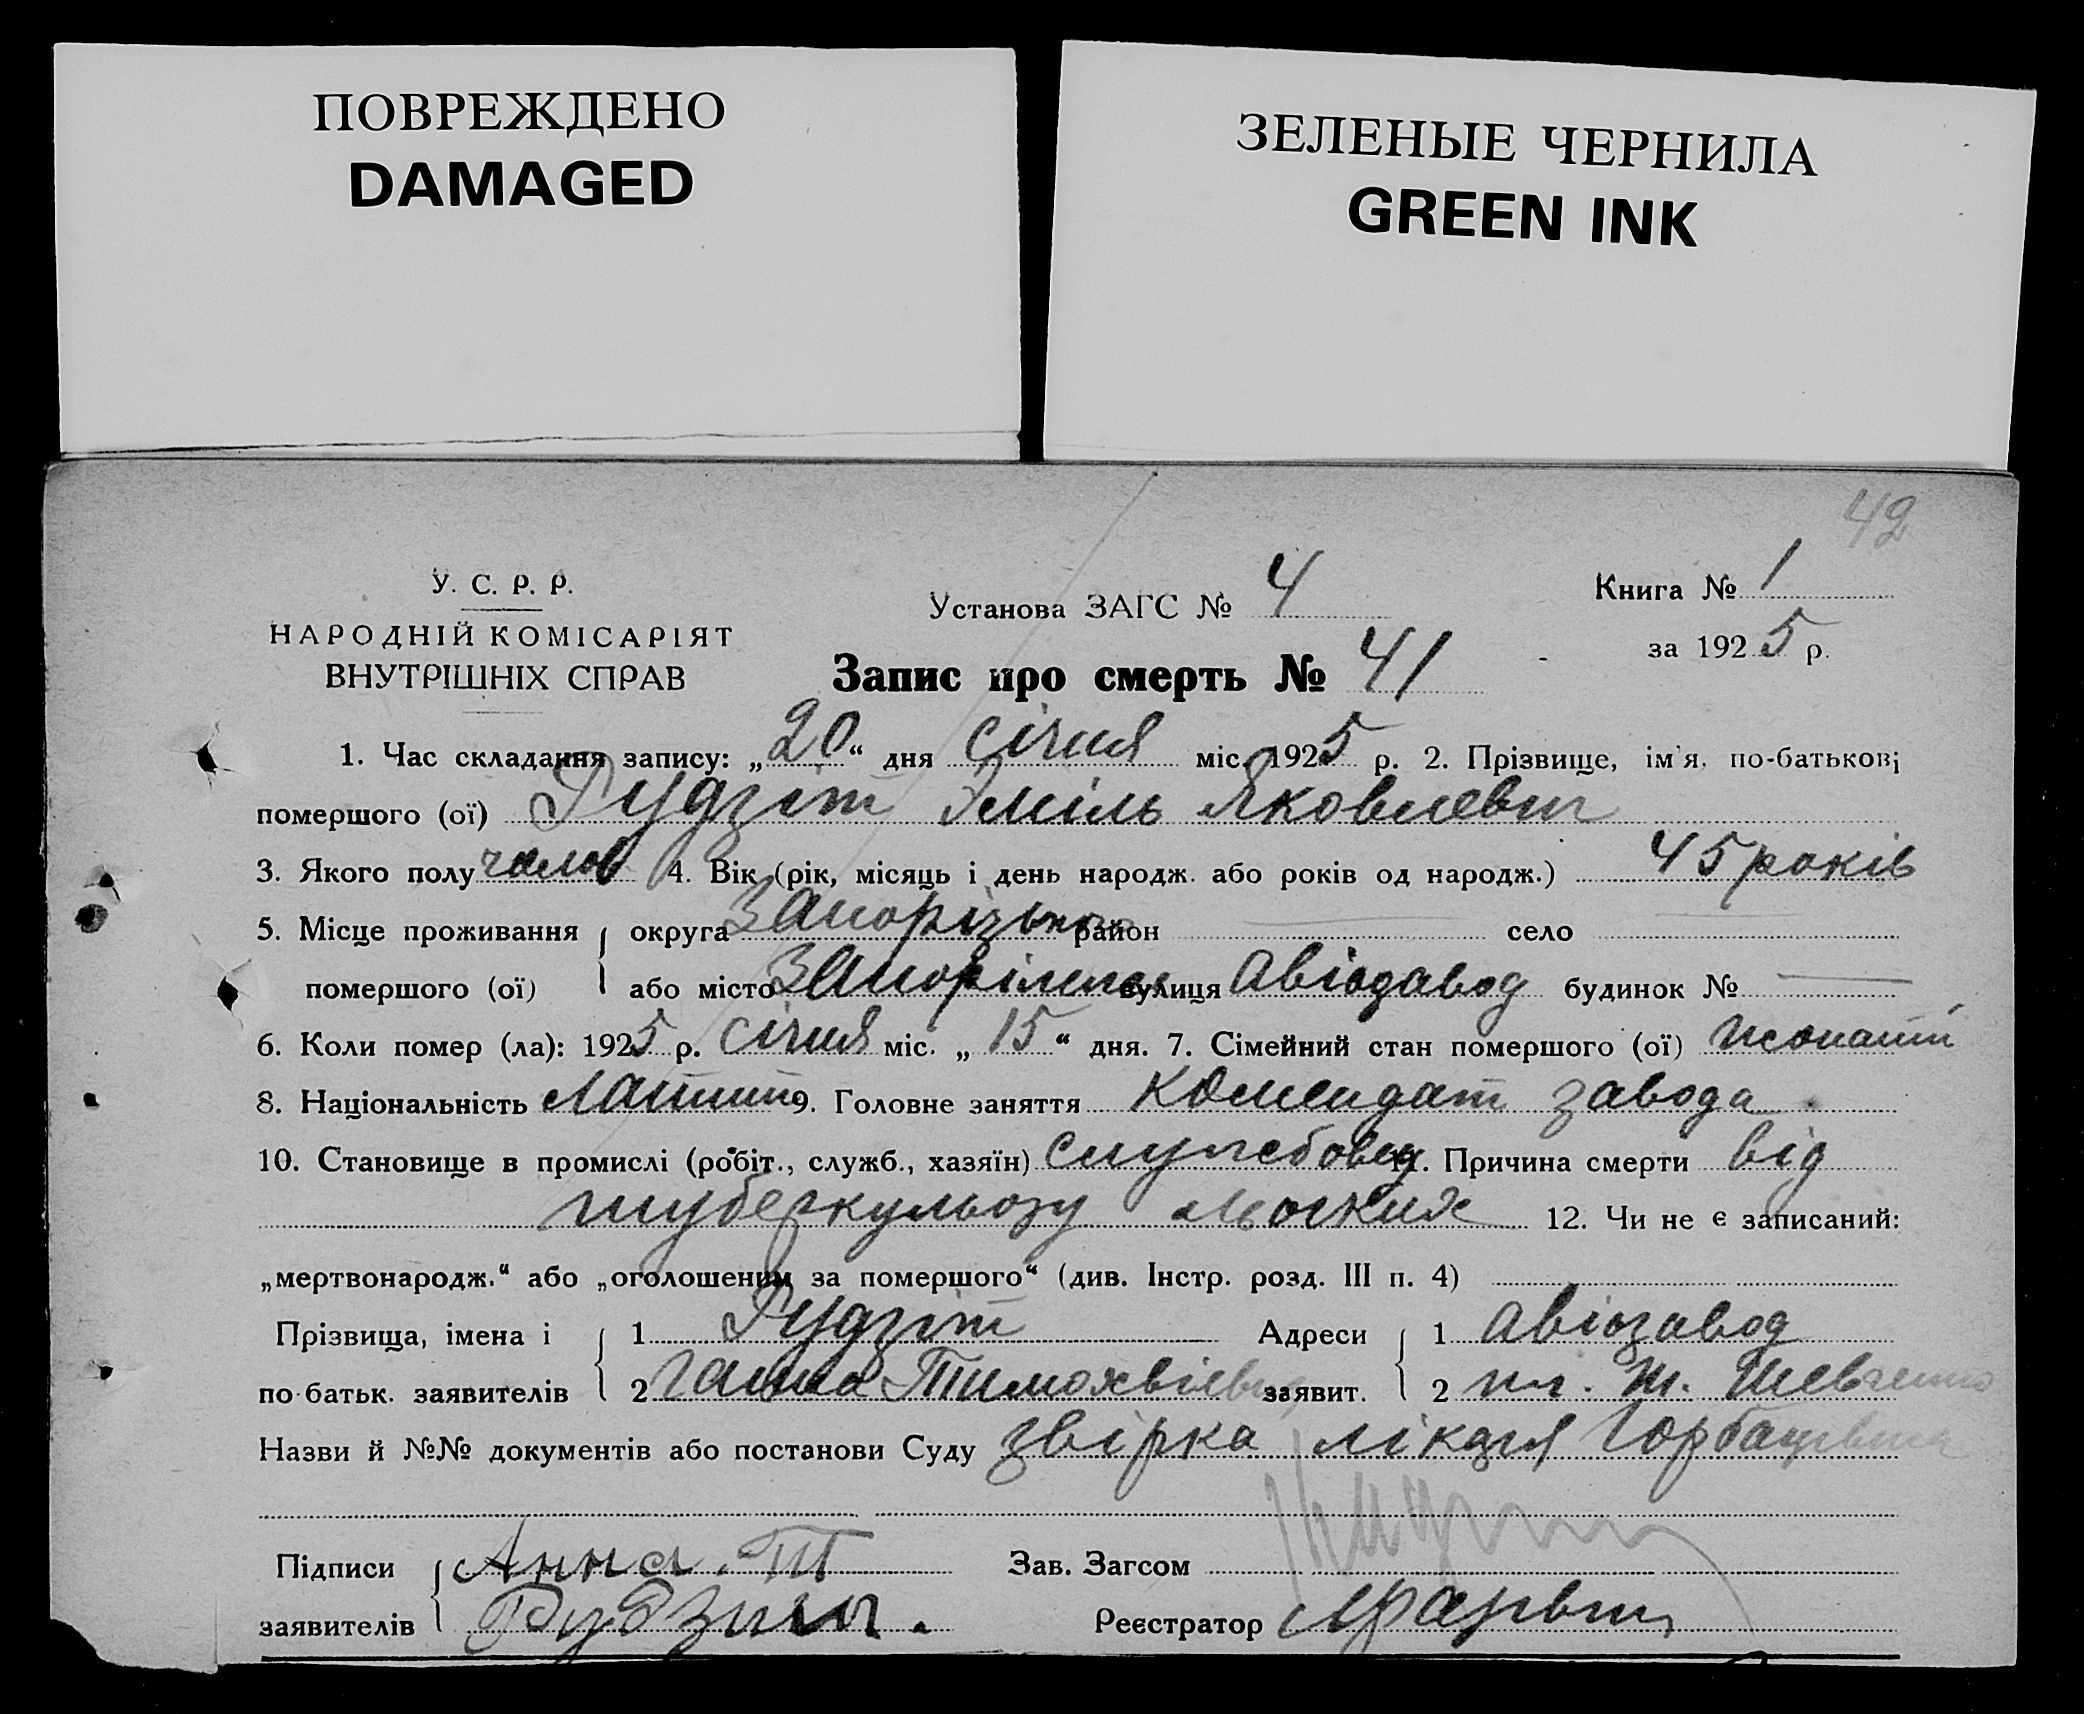 ПОВРЕЖДЕНО
DAMAGED
ЗЕЛЕНЫЕ ЧЕРНИЛА
GREEN INK
42
У. С. Р. Р.
НАРОДНІЙ КОМІСАРІЯТ
ВНУТРІШНІХ СПРАВ
Установа ЗАГС № 4
Книга № 1
за 1925 р.
Запис про смерть № 41
1. Час складання запису: „20“ дня січня міс. 1925 р. 2. Прізвище, ім'я, по-батькові
помершого (ої) Рудзіт Эміль Яковлевич
3. Якого полу чолов 4. Вік (рік, місяць і день народж. або років од народж.) 45 років
5. Місце проживання округа Запорізька район село
помершого (ої) або місто Запоріжже вулиця Авіозавод будинок №
6. Коли помер (ла): 1925 р. січня міс. „15“ дня. 7. Сімейний стан помершого (ої) жонатий
8. Національність Латиш 9. Головне заняття комендат завода
10. Становище в промислі (робіт., служб., хазяїн) службовец 11. Причина смерти від
туберкульозу льогких 12. Чи не є записаний:
„мертвонародж.“ або „оголошеним за помершого“ (див. Інстр. розд. III п. 4)
Прізвища, імена і 1 Рудзіт Адреси 1 Авіозавод
по-батьк. заявителів 2 Ганна Тимохвіевна заявит. 2 пл. Т. Шевченко
Назви й №№ документів або постанови Суду звірка лікаря
Підписи Анна. Т Зав. Загсом
заявителів Рудзит. Реєстратор